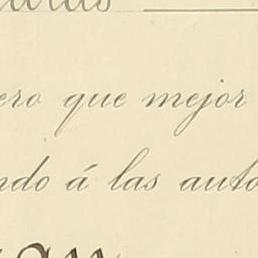 ero que mejor
ndo á las auto